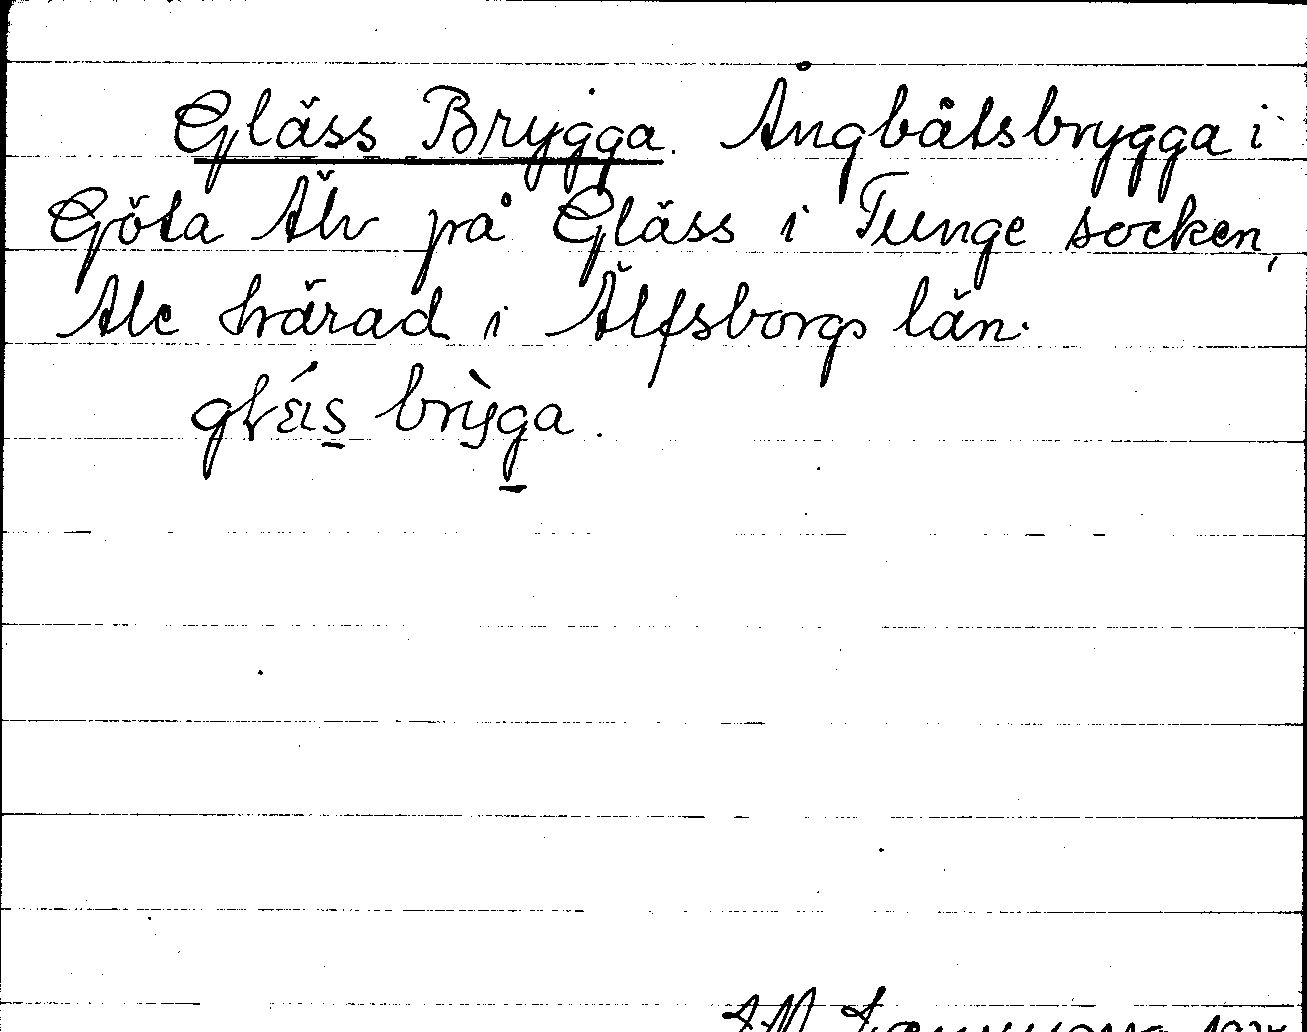 Gläss Brygga. Ångbåtsbrygga i
Göta Älv på Gläss i Tunge socken,
Ale härad i Älfsborgs län.
brỳga.